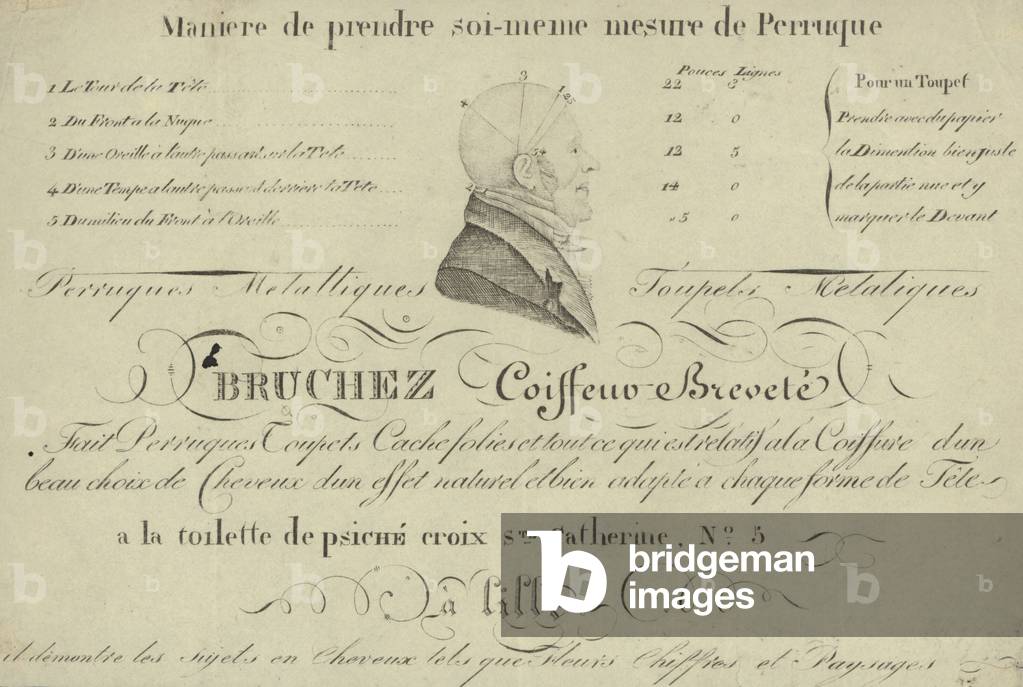 Maniere de prendre soi-meme mesure de Perruque
Pouces Lignes
1 Le Tour de la Tête 22 3
2 Du Front a la Nuque 12 0
3 D'une Oreille à l'autre passant sur la Tete 12 5
4 D'une Tempe a l'autre passant derriere la Tête 14 0
5 Du milieu du Front à l'Oreille 5 0
Pour un Toupet
Prendre avec du papier
la Dimention bien juste
de la partie nue et y
marquer le Devant
3
4
1.25
54
2
Perruques Metalliques
Toupets Metaliques
BRUCHEZ Coiffeur Breveté
Fait Perruques Toupets Cache folies et tout ce qui est rélatif a la Coiffure d'un
beau choix de Cheveux d'un effet naturel et bien adapté a chaque forme de Tête
a la toilette de psiché croix Ste Catherine, No. 5
à Lille
il démontre les sujets en Cheveux tels que Fleurs Chiffres et Paysages
b bridgeman
images